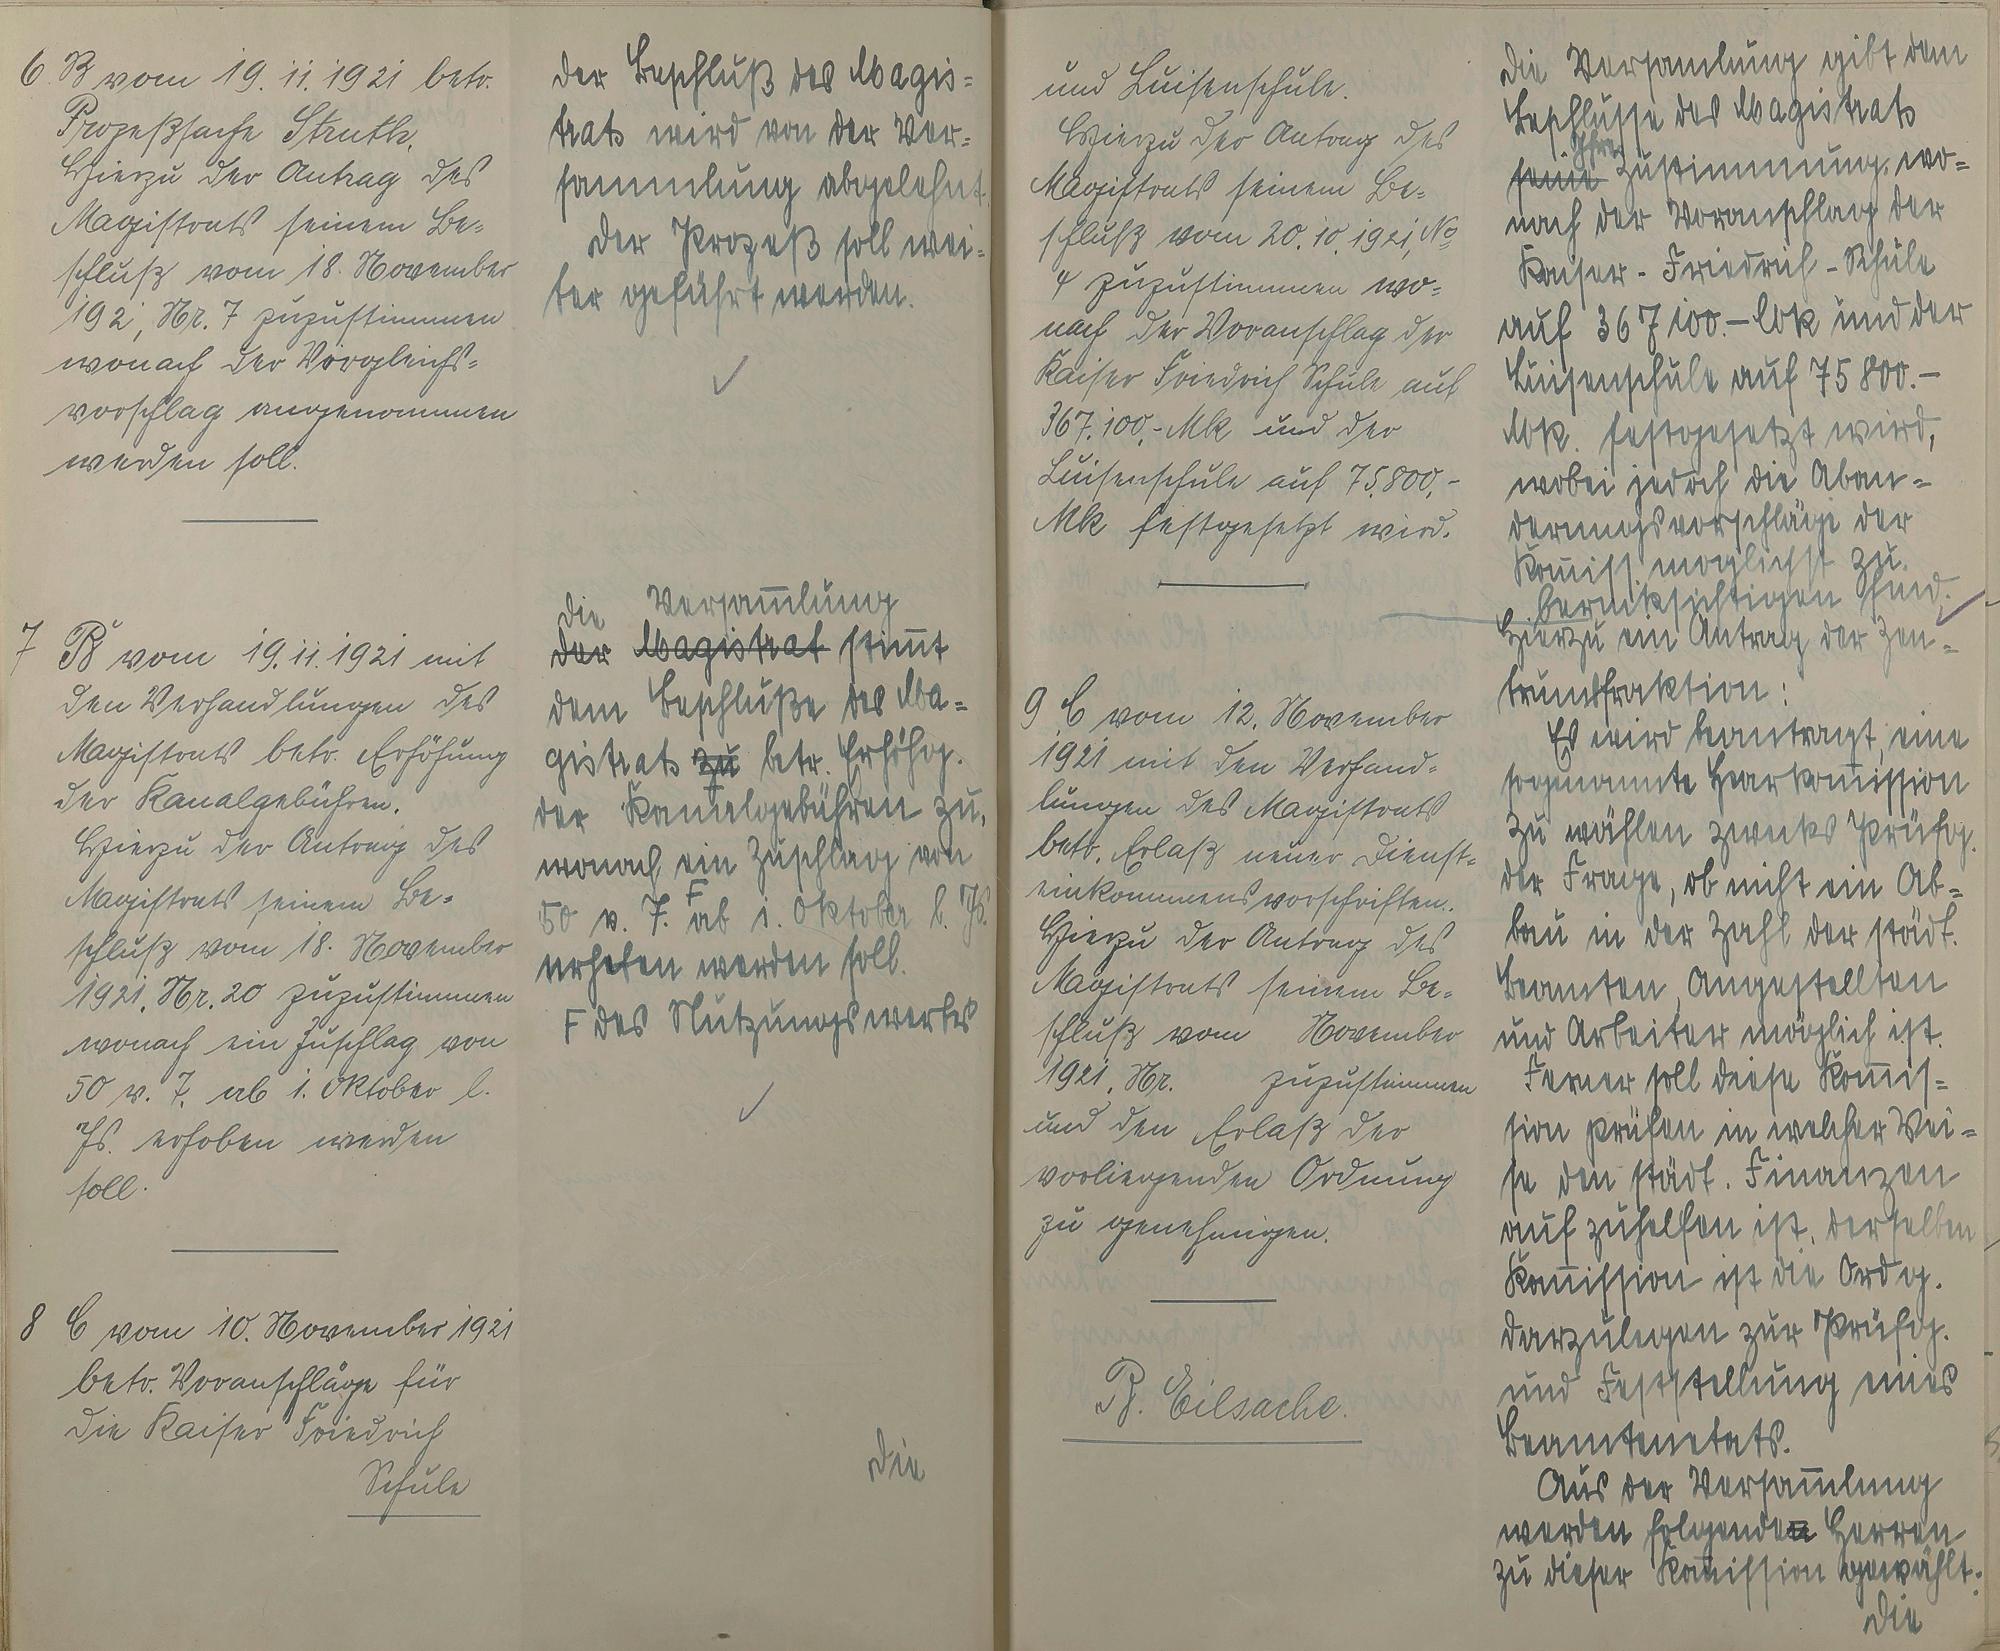 6 B vom 19.11.1921 betr.
Prozeßsache Struth.
Hierzu der Antrag des
Magistrats seinem Be-
schluß vom 18. November
1921, Nr. 7 zuzustimmen
wonach der Vergleichs-
vorschlag angenommen
werden soll.
der Beschluß des Magis-
trats wird von der Ver-
sammlung abgelehnt.
Der Prozeß soll wei-
ter geführt werden.
7 B vom 19.11.1921 mit
den Verhandlungen des
Magistrats betr. Erhöhung
der Kanalgebühren.
Hierzu der Antrag des
Magistrats seinem Be-
schluß vom 18. November
1921, Nr. 20 zuzustimmen
wonach ein Zuschlag von
50 v. H. ab 1. Oktober l.
Js. erhoben werden
soll.
die Versam̄lung
der Magistrat stim̄t
dem Beschluße des Ma-
gistrats zu betr. Erhöhg.
der Kanalgebühren zu,
wonach ein Zuschlag von
50 v. H. F ab 1. Oktober l. Js.
erhoben werden soll.
F des Nutzungswertes
8 C vom 10. November 1921
betr. Voranschläge für
die Kaiser Friedrich
Schule
Die
und Luisenschule.
Hierzu der Antrag des
Magistrats seinem Be-
schluß vom 20.10.1921, No
4 zuzustimmen wo-
nach der Voranschlag der
Kaiser Friedrich Schule auf
367.100,- Mk und der
Luisenschule auf 75.800,-
Mk festgesetzt wird.
9 C vom 12. November
1921 mit den Verhand-
lungen des Magistrats
betr. Erlaß neuer Dienst-
einkommensvorschriften.
Hierzu der Antrag des
Magistrats seinem Be-
schluß vom November
1921, Nr. zuzustimmen
und den Erlaß der
vorliegenden Ordnung
zu genehmigen.
B. Eilsache.
Die Versamlung gibt dem
Beschlusse des Magistrats
ihre
seine Zustimmung, wo-
nach der Voranschlag der
Kaiser-Friedrich-Schule
auf 367100.- Mk und der
Luisenschule auf 75800.-
Mk. festgesetzt wird,
wobei jedoch die Aban-
derungsvorschläge der
Kom̄iss. moglichst zu
berücksichtigen sind.
Hierzu ein Antrag der Zen-
trumsfraktion:
Es wird beantragt, eine
sogenannte Sparkom̄ission
zu wählen zwecks Prüfg.
der Frage, ob nicht ein Ab-
bau in der Zahl der städt.
Beamten, Angestellten
und Arbeiter möglich ist.
Ferner soll diese Kom̄is-
sion prüfen in welcher Wei-
se den städt. Finanzen
auf zuhelfen ist. Derselben
Kom̄ission ist die Ordg.
darzulegen zur Prüfg.
und Feststellung eines
Beamtenetats.
Aus der Versam̄lung
werden folgenden Herren
zu dieser Kom̄ission gewählt:
Die